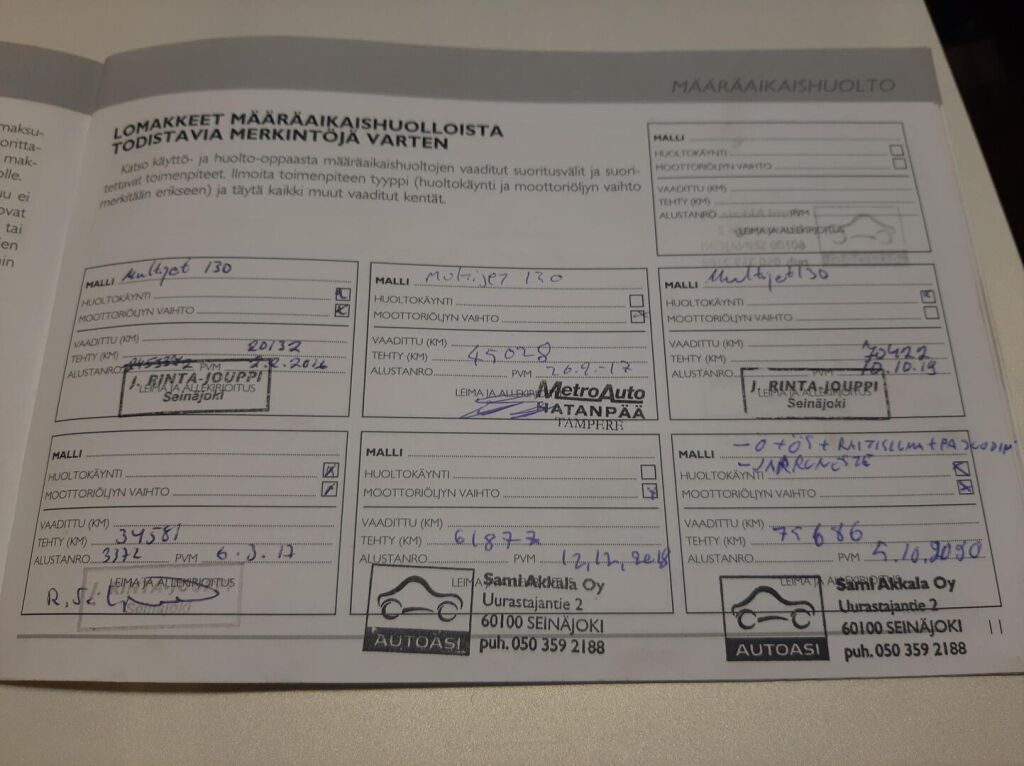 MÄÄRÄAIKAISHUOLTO
maksu-
oritta-
mak-
olle.
uu ei
ovat
tai
en
in
LOMAKKEET MÄÄRÄAIKAISHUOLLOISTA
TODISTAVIA MERKINTÖJÄ VARTEN
Katso käyttö- ja huolto-oppaasta määräaikaishuoltojen vaaditut suoritusvälit ja suori-
tettavat toimenpiteet. Ilmoita toimenpiteen tyyppi (huoltokäynti ja moottoriöljyn vaihto
merkitään erikseen) ja täytä kaikki muut vaaditut kentät.
MALLI
HUOLTOKÄYNTI
MOOTTORIÖLJYN VAIHTO
VAADITTU (KM)
TEHTY (KM)
ALUSTANRO PVM
LEIMA JA ALLEKIRJOITUS
MALLI Multijet 130
HUOLTOKÄYNTI
MOOTTORIÖLJYN VAIHTO
VAADITTU (KM)
TEHTY (KM) 20132
ALUSTANRO PVM 2.2.2016
LEIMA JA ALLEKIRJOITUS
J. RINTA-JOUPPI
Seinäjoki
MALLI Multijet 130
HUOLTOKÄYNTI
MOOTTORIÖLJYN VAIHTO
VAADITTU (KM)
TEHTY (KM) 45028
ALUSTANRO PVM 26.9.-17
LEIMA JA ALLEKIRJOITUS
MetroAuto
HATANPÄÄ
TAMPERE
MALLI Multijet 130
HUOLTOKÄYNTI
MOOTTORIÖLJYN VAIHTO
VAADITTU (KM)
TEHTY (KM) 70422
ALUSTANRO PVM 10.10.19
LEIMA JA ALLEKIRJOITUS
J. RINTA-JOUPPI
Seinäjoki
MALLI
HUOLTOKÄYNTI
MOOTTORIÖLJYN VAIHTO
VAADITTU (KM)
TEHTY (KM) 34581
ALUSTANRO 3372 PVM 6.3.17
LEIMA JA ALLEKIRJOITUS
J. RINTA-JOUPPI
Seinäjoki
MALLI
HUOLTOKÄYNTI
MOOTTORIÖLJYN VAIHTO
VAADITTU (KM)
TEHTY (KM) 61877
ALUSTANRO PVM 12.12.2018
LEIMA JA ALLEKIRJOITUS
AUTOASI
Sami Akkala Oy
Uurastajantie 2
60100 SEINÄJOKI
puh. 050 359 2188
- Ö + ÖS + RAITISILMA +
MALLI
HUOLTOKÄYNTI
MOOTTORIÖLJYN VAIHTO
VAADITTU (KM)
TEHTY (KM) 75686
ALUSTANRO PVM 5.10.2020
LEIMA JA ALLEKIRJOITUS
AUTOASI
Sami Akkala Oy
Uurastajantie 2
60100 SEINÄJOKI
puh. 050 359 2188
11